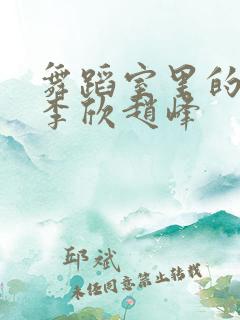 舞蹈室里的
李欣赵峰
邱斌
未经同意禁止转载